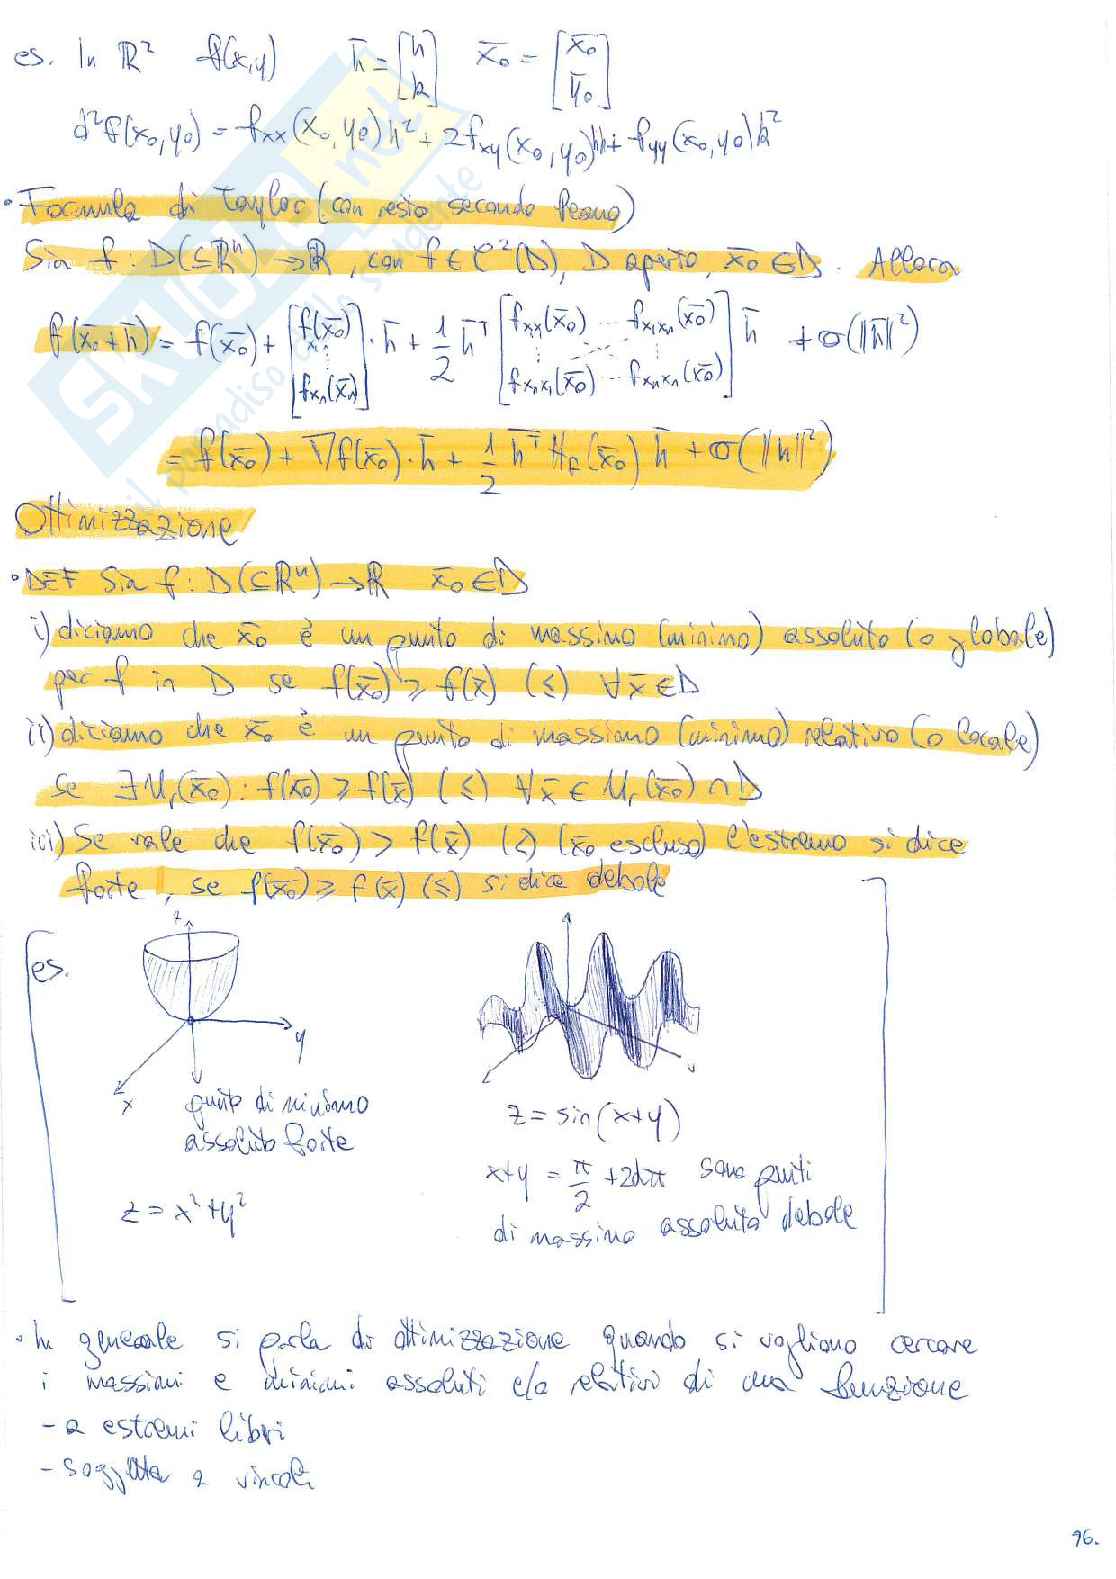 es. In ℝ² f(x,y) h̄ = [h k] x̄₀ = [x̄₀ ȳ₀]
d²f(x₀,y₀) = fxx(x₀,y₀)h² + 2fxy(x₀,y₀)hk + fyy(x₀,y₀)k²
• Formula di Taylor (con resto secondo Peano)
Sia f : D(⊆ℝⁿ) → ℝ, con f ∈ C²(D), D aperto, x̄₀ ∈ D. Allora
f(x̄₀+h̄) = f(x̄₀) + [fx₁(x̄₀) ⋮ fxₙ(x̄₀)] · h̄ + 1/2 h̄ᵀ [fxx(x̄₀) ... fx₁xₙ(x̄₀) ⋮ fxₙx₁(x̄₀) ... fxₙxₙ(x̄₀)] h̄ + σ(||h̄||²)
= f(x̄₀) + ∇f(x̄₀)·h̄ + 1/2 h̄ᵀ Hf(x̄₀) h̄ + σ(||h||²)
Ottimizzazione
• DEF Sia f : D(⊆ℝⁿ) → ℝ x̄₀ ∈ D
i) diciamo che x̄₀ è un punto di massimo (minimo) assoluto (o globale)
per f in D se f(x̄₀) ⩾ f(x̄) (≤) ∀x̄ ∈ D
ii) diciamo che x̄₀ è un punto di massimo (minimo) relativo (o locale)
se ∃ Ur(x̄₀) : f(x̄₀) ⩾ f(x̄) (≤) ∀x̄ ∈ Ur(x̄₀) ∩ D
iii) Se vale che f(x̄₀) > f(x̄) (<) (x̄₀ escluso) l'estremo si dice
forte, se f(x̄₀) ⩾ f(x̄) (≤) si dice debole
es.
z
y
x
punto di minimo
assoluto forte
z = x² + y²
z = sin(x+y)
x+y = π/2 + 2kπ sono punti
di massimo assoluto debole
• In generale si parla di ottimizzazione quando si vogliono cercare
i massimi e minimi assoluti e/o relativi di una funzione
- a estremi liberi
- soggetta a vincoli
96.
SKUOLA.net
il paradiso dello studente